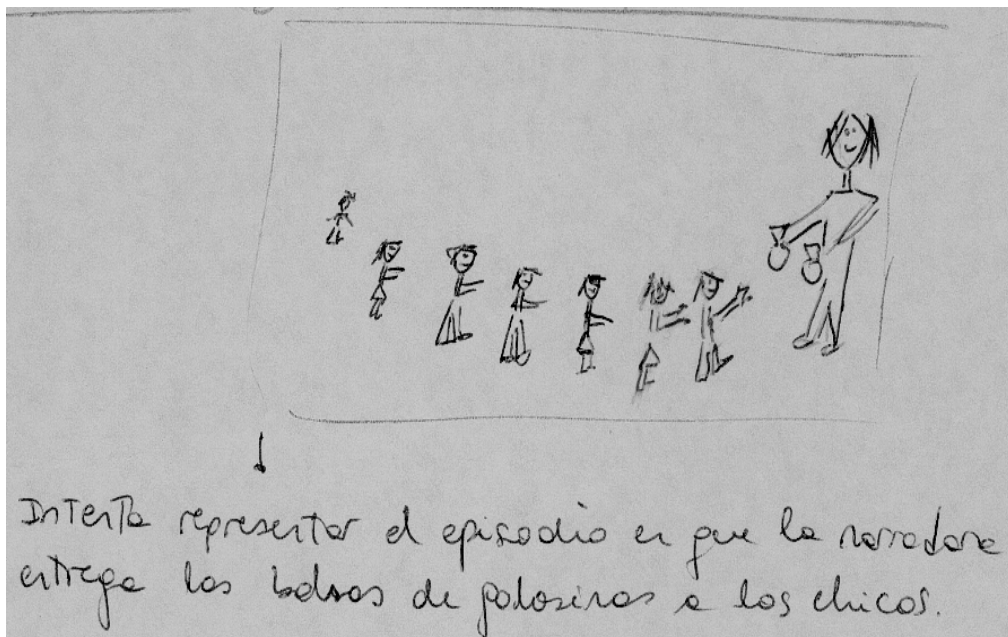 Intenta representar el episodio en que la narradora
entrega las bolsas de golosinas a los chicos.